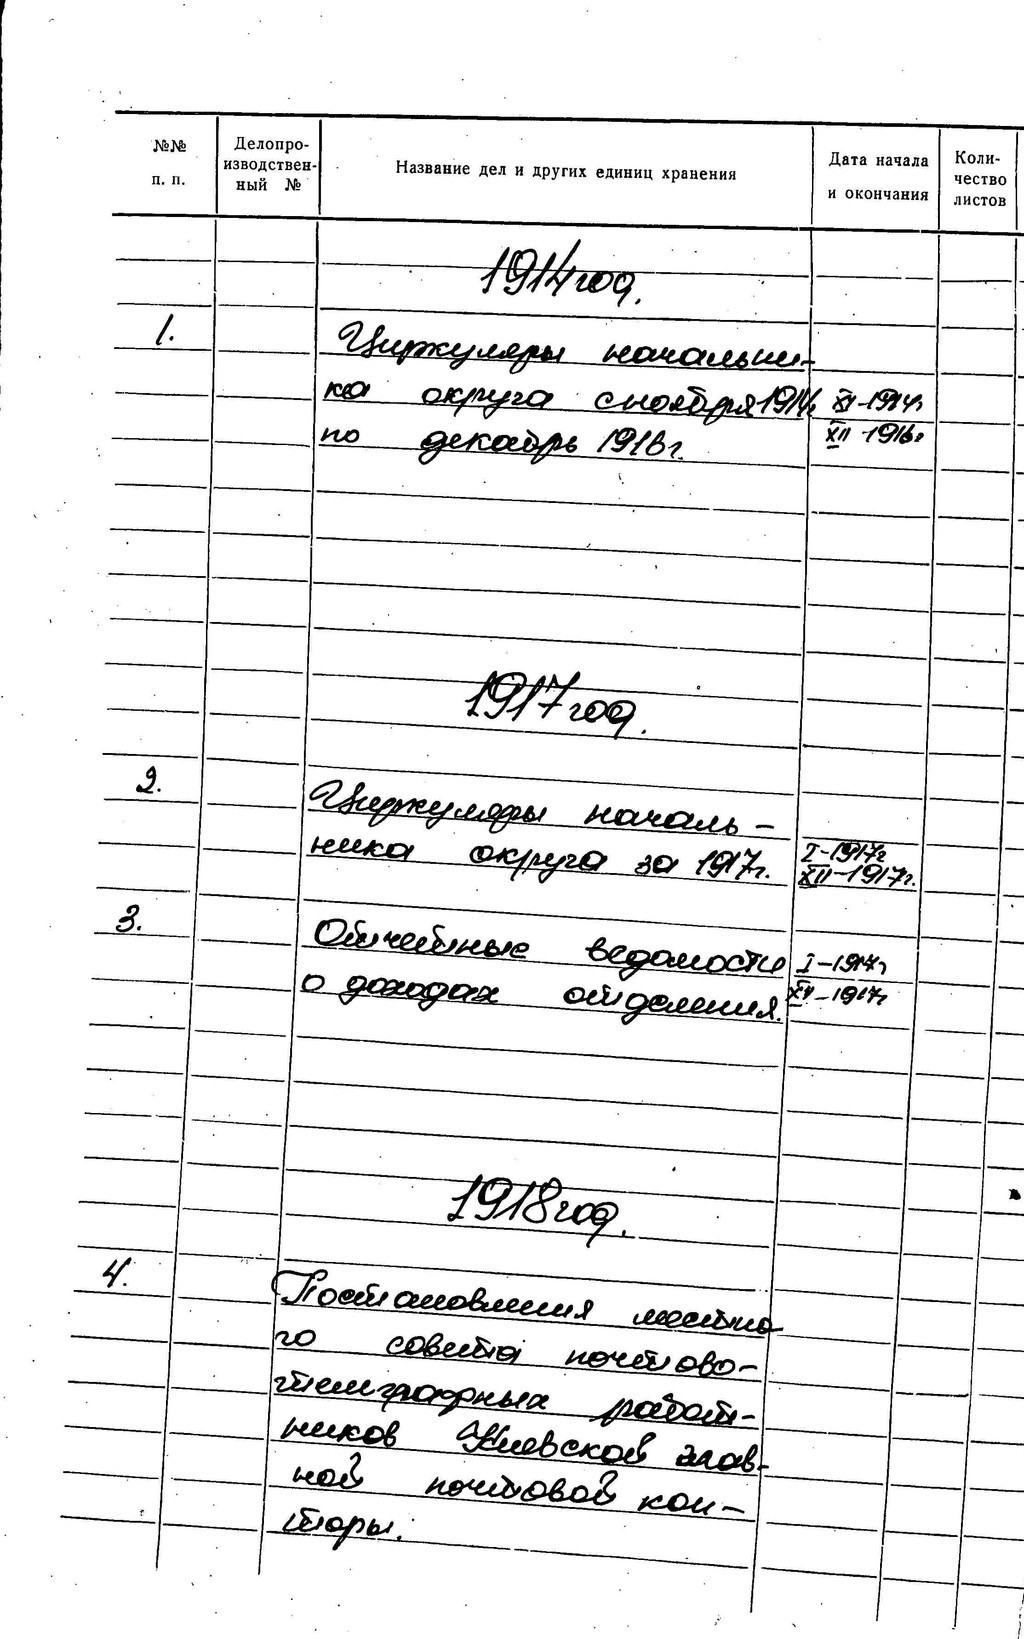 №№ п. п.
Делопро-
изводствен-
ный №
Название дел и других единиц хранения
Дата начала
и окончания
Коли-
чество
листов
1914 год.
1.
Циркуляры начальни-
ка округа с ноября 1914г. XI-1914г
по декабрь 1916г. XII-1916г
1917 год.
2.
Циркуляры началь-
ника округа за 1917г. I-1917г
XII-1917г.
3.
Отчетные ведомости I-1917г
о доходах отделения. XII-1917г
1918 год.
4.
Постановления местно-
го совета почтово-
телеграфных работ-
ников Киевской глав-
ной почтовой кон-
торы.